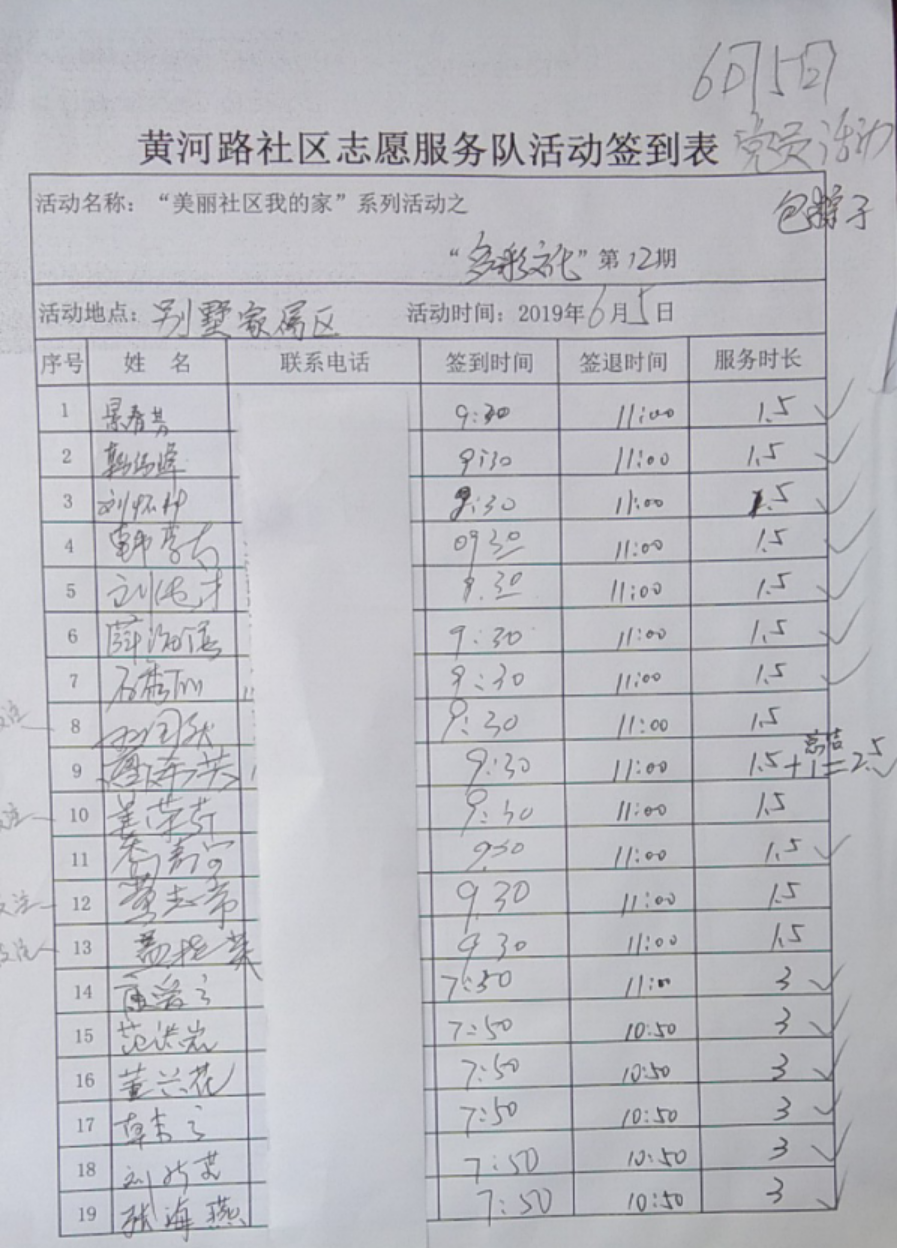 6月5日
黄河路社区志愿服务队活动签到表 党员活动
包粽子
活动名称：“美丽社区我的家”系列活动之
“多彩文化”第12期
活动地点：别墅家属区 活动时间：2019年6月5日
序号 姓 名 联系电话 签到时间 签退时间 服务时长
1 9:30 11:00 1.5
2 9:30 11:00 1.5
3 刘怀 9:30 11:00 1.5
4 09 30 11:00 1.5
5 9.30 11:00 1.5
6 薛 9:30 11:00 1.5
7 石 9:30 11:00 1.5
8 9:30 11:00 1.5
9 9:30 11:00 1.5+1=2.5 总结
10 姜荣 9:30 11:00 1.5
11 9:30 11:00 1.5
12 9.30 11:00 1.5
13 9 30 11:00 1.5
14 7:50 11:00 3
15 范洪岩 7:50 10:50 3
16 董兴花 7:50 10:50 3
17 7:50 10:50 3
18 刘 7:50 10:50 3
19 张海燕 7:50 10:50 3